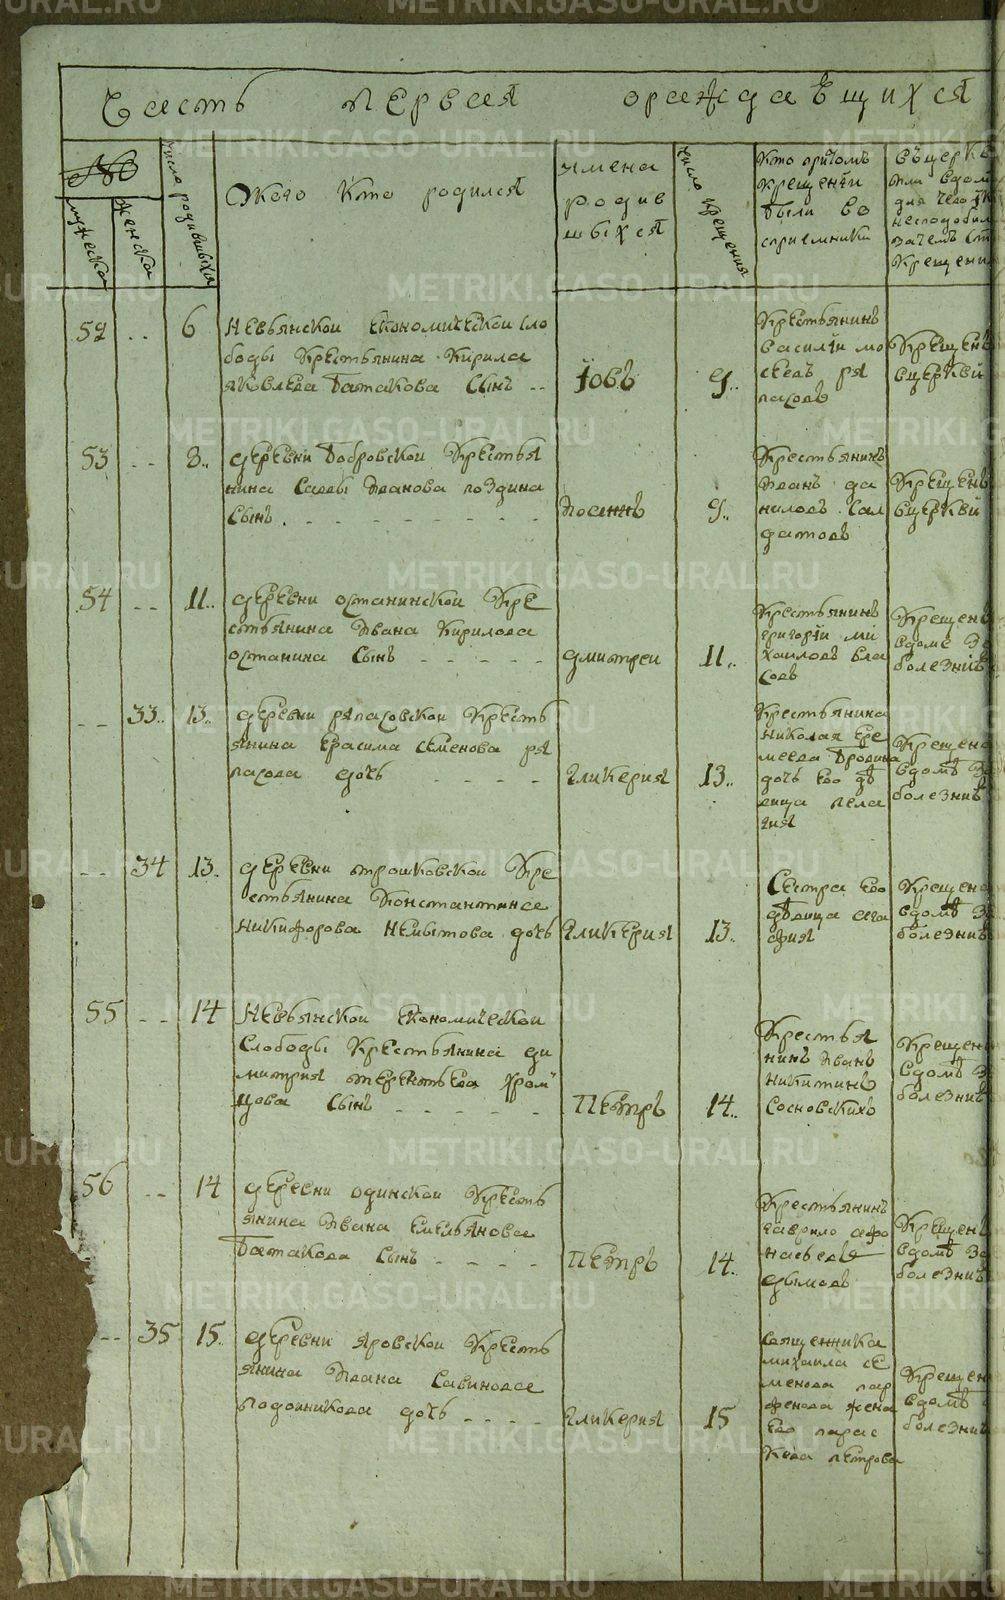 Часть первая ораждающихся
№
мужеска
женска
число родившихся
Окого кто родился
имена
родив
шыхся
число крещения
кто притомъ
крещении
были во
сприемники
вцерк
или вдом
для чего
неспособн
зачемъ
крещени
52 .. 6 Невьянской економической сло
боды крестьянина Кирила
яковлева Батакова сынъ ..
Іовъ
9..
крестьянинъ
василіи мо
сеевъ ря
пасовъ
крещенъ
вцеркви
53 .. 8.. деревни Бобровской крестья
нина Саввы Иванова поздина
сынъ
Иоаннъ
9..
крестьянинъ
Иванъ да
ниловъ сал
датовъ
крещенъ
вцеркви
54 .. 11.. деревни останинской кре
стьянина Ивана Кирилова
останина сынъ
дмитреи
11..
крестьянинъ
григорїи ми
хаиловъ вла
совъ
крещенъ
вдоме за
болезнию
.. 33.. 13.. деревни ряпасовской кресть
янина Герасима Семенова ря
пасова дочь
гликерия
13..
крестьянина
николая Ере
меева Бродина
дочь его дѣ
вица пела
гия
крещена
вдомѣ за
болезнию
.. 34 13.. деревни трошковской кре
стьянина Константина
никифорова Немытова дочь
гликерия
13..
Сестра его
дѣвица ага
фия
крещена
вдомѣ за
болезнию
55 .. 14 Невьянской економической
слободы крестьянина ди
митрия терентьева хром
цова сынъ
Петръ
14..
крестья
нинъ Иванъ
никитинъ
сосновскихъ
крещенъ
вдомѣ за
болезнию
56 .. 14 деревни одинской кресть
янина Ивана Емельянова
Батакова сынъ
Петръ
14..
крестьянинъ
гаврило афо
насьевъ
дымовъ
крещенъ
вдомѣ за
болезнию
.. 35 15.. деревни яровской кресть
янина Ивана Савинова
подойникова дочь
гликерия
15
священника
михаила се
менова пар
фенова жена
его парас
кева петрова
крещена
вдомѣ
болезнию
METRIKI.GASO-URAL.RU